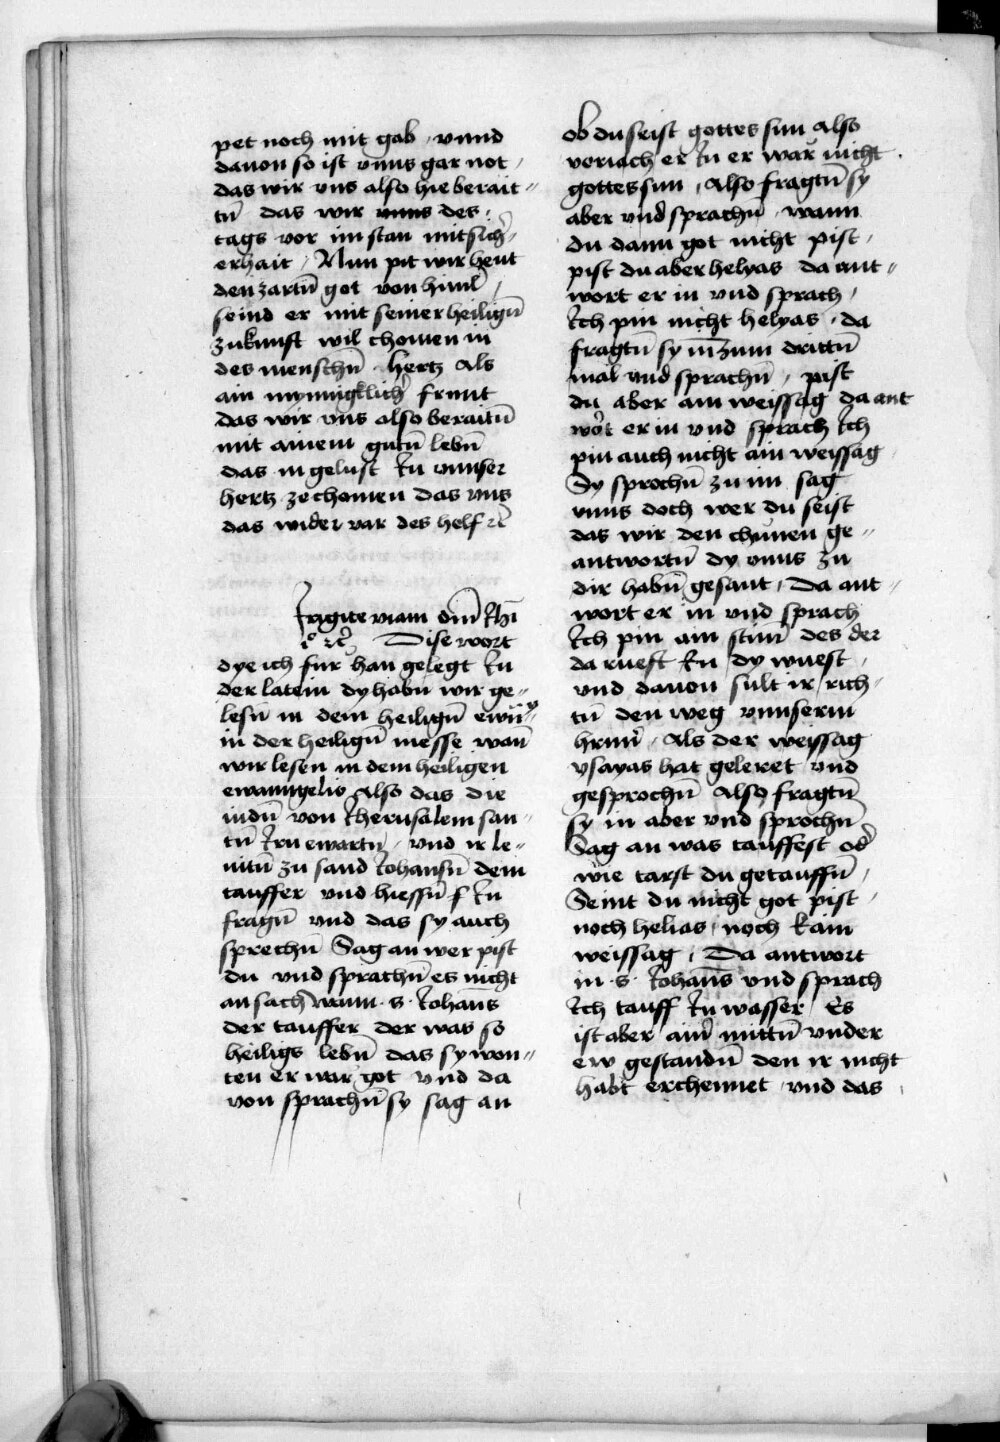 pet noch mit gab · vnnd
dauon so ist vnns gar not ·
das wir vns also hie berait〃
tn̄ das wir vnns des ·
tags vor im stan mit sich̄〃
erhait / Nun pit wir heut
den zartn̄ got von himl̄ /
seind er mit seiner heilign̄
zukunft wil chomen in
des menschn̄ hertz als
ain mynnigklich̄ frunt
das wir vns also beraitn̄
mit ainem gutn̄ lebn̄
das in gelust Jn vnnser
hertz ze chomen das vns
das wider var des helf ꝛc̄
Jrigite viam dm̄ Joh̄i
i° ꝛc̄ Dise wort
dye ich fur han gelegt Jn
der latein dy habn̄ wir ge〃
lesn̄ in dem heilign̄ ewn̄〃
in der heilign̄ messe wan̄
wir lesen in dem heiligen
ewanngelio Also das die
iudn̄ von Jherusalem san〃
tn̄ Jrn ewartn̄ · vnd ir le〃
uitn̄ zu sand Johansn̄ dem
tauffer vnd hiessn̄ s Jn
fragn̄ vnd das sy auch
sprechn̄ Sag an wer pist
du vnd sprachn̄ es nicht
an sach wann · s · Johan̄s
der tauffer der was so
heiligs lebn̄ das sy won〃
ten er war got vnd da
von sprachn̄ sy sag an
ob du seist gottes sun Also
veriach er Jn er war nicht ·
gottes sun / Also fragtn̄ sy
aber vnd sprachn̄ · wann
du dann got nicht pist /
pist du aber helyas da ant〃
wort er in vnd sprach /
Ich pin nicht helyas · da
fragtn̄ sy in̄ zum drittn̄
mal vnd sprachn̄ / pist
du aber ain weissag da ant
wort er in vnd sprach Ich
pin auch nicht ain weissag
Sy sprochn̄ zu im sag
vnns doch wer du seist
das wir den chunen ge〃
antwortn̄ dy vnns zu
dir habn̄ gesant / Da ant〃
wort er in vnd sprach
Ich pin ain stim̄ des der
da rueft Jn dy wuest /
vnd dauon sult ir rich〃
tn̄ den weg vnnserm
hrnn̄ / Als der weissag
ysayas hat geleret vnd
gesprochn̄ Also fragtn̄
sy in aber vnd sprochn̄
Sag an was tauffest od̄
wie tarst du getauffn̄ /
Seint du nicht got pist /
noch helias / noch kain
weissag / Da antwort
in · s · Johan̄s vnd sprach
Ich tauff Jn wasser / Es
ist aber ain̄ mittn̄ vnder
ew gestandn̄ den ir nicht
habt erchennet / vnd das